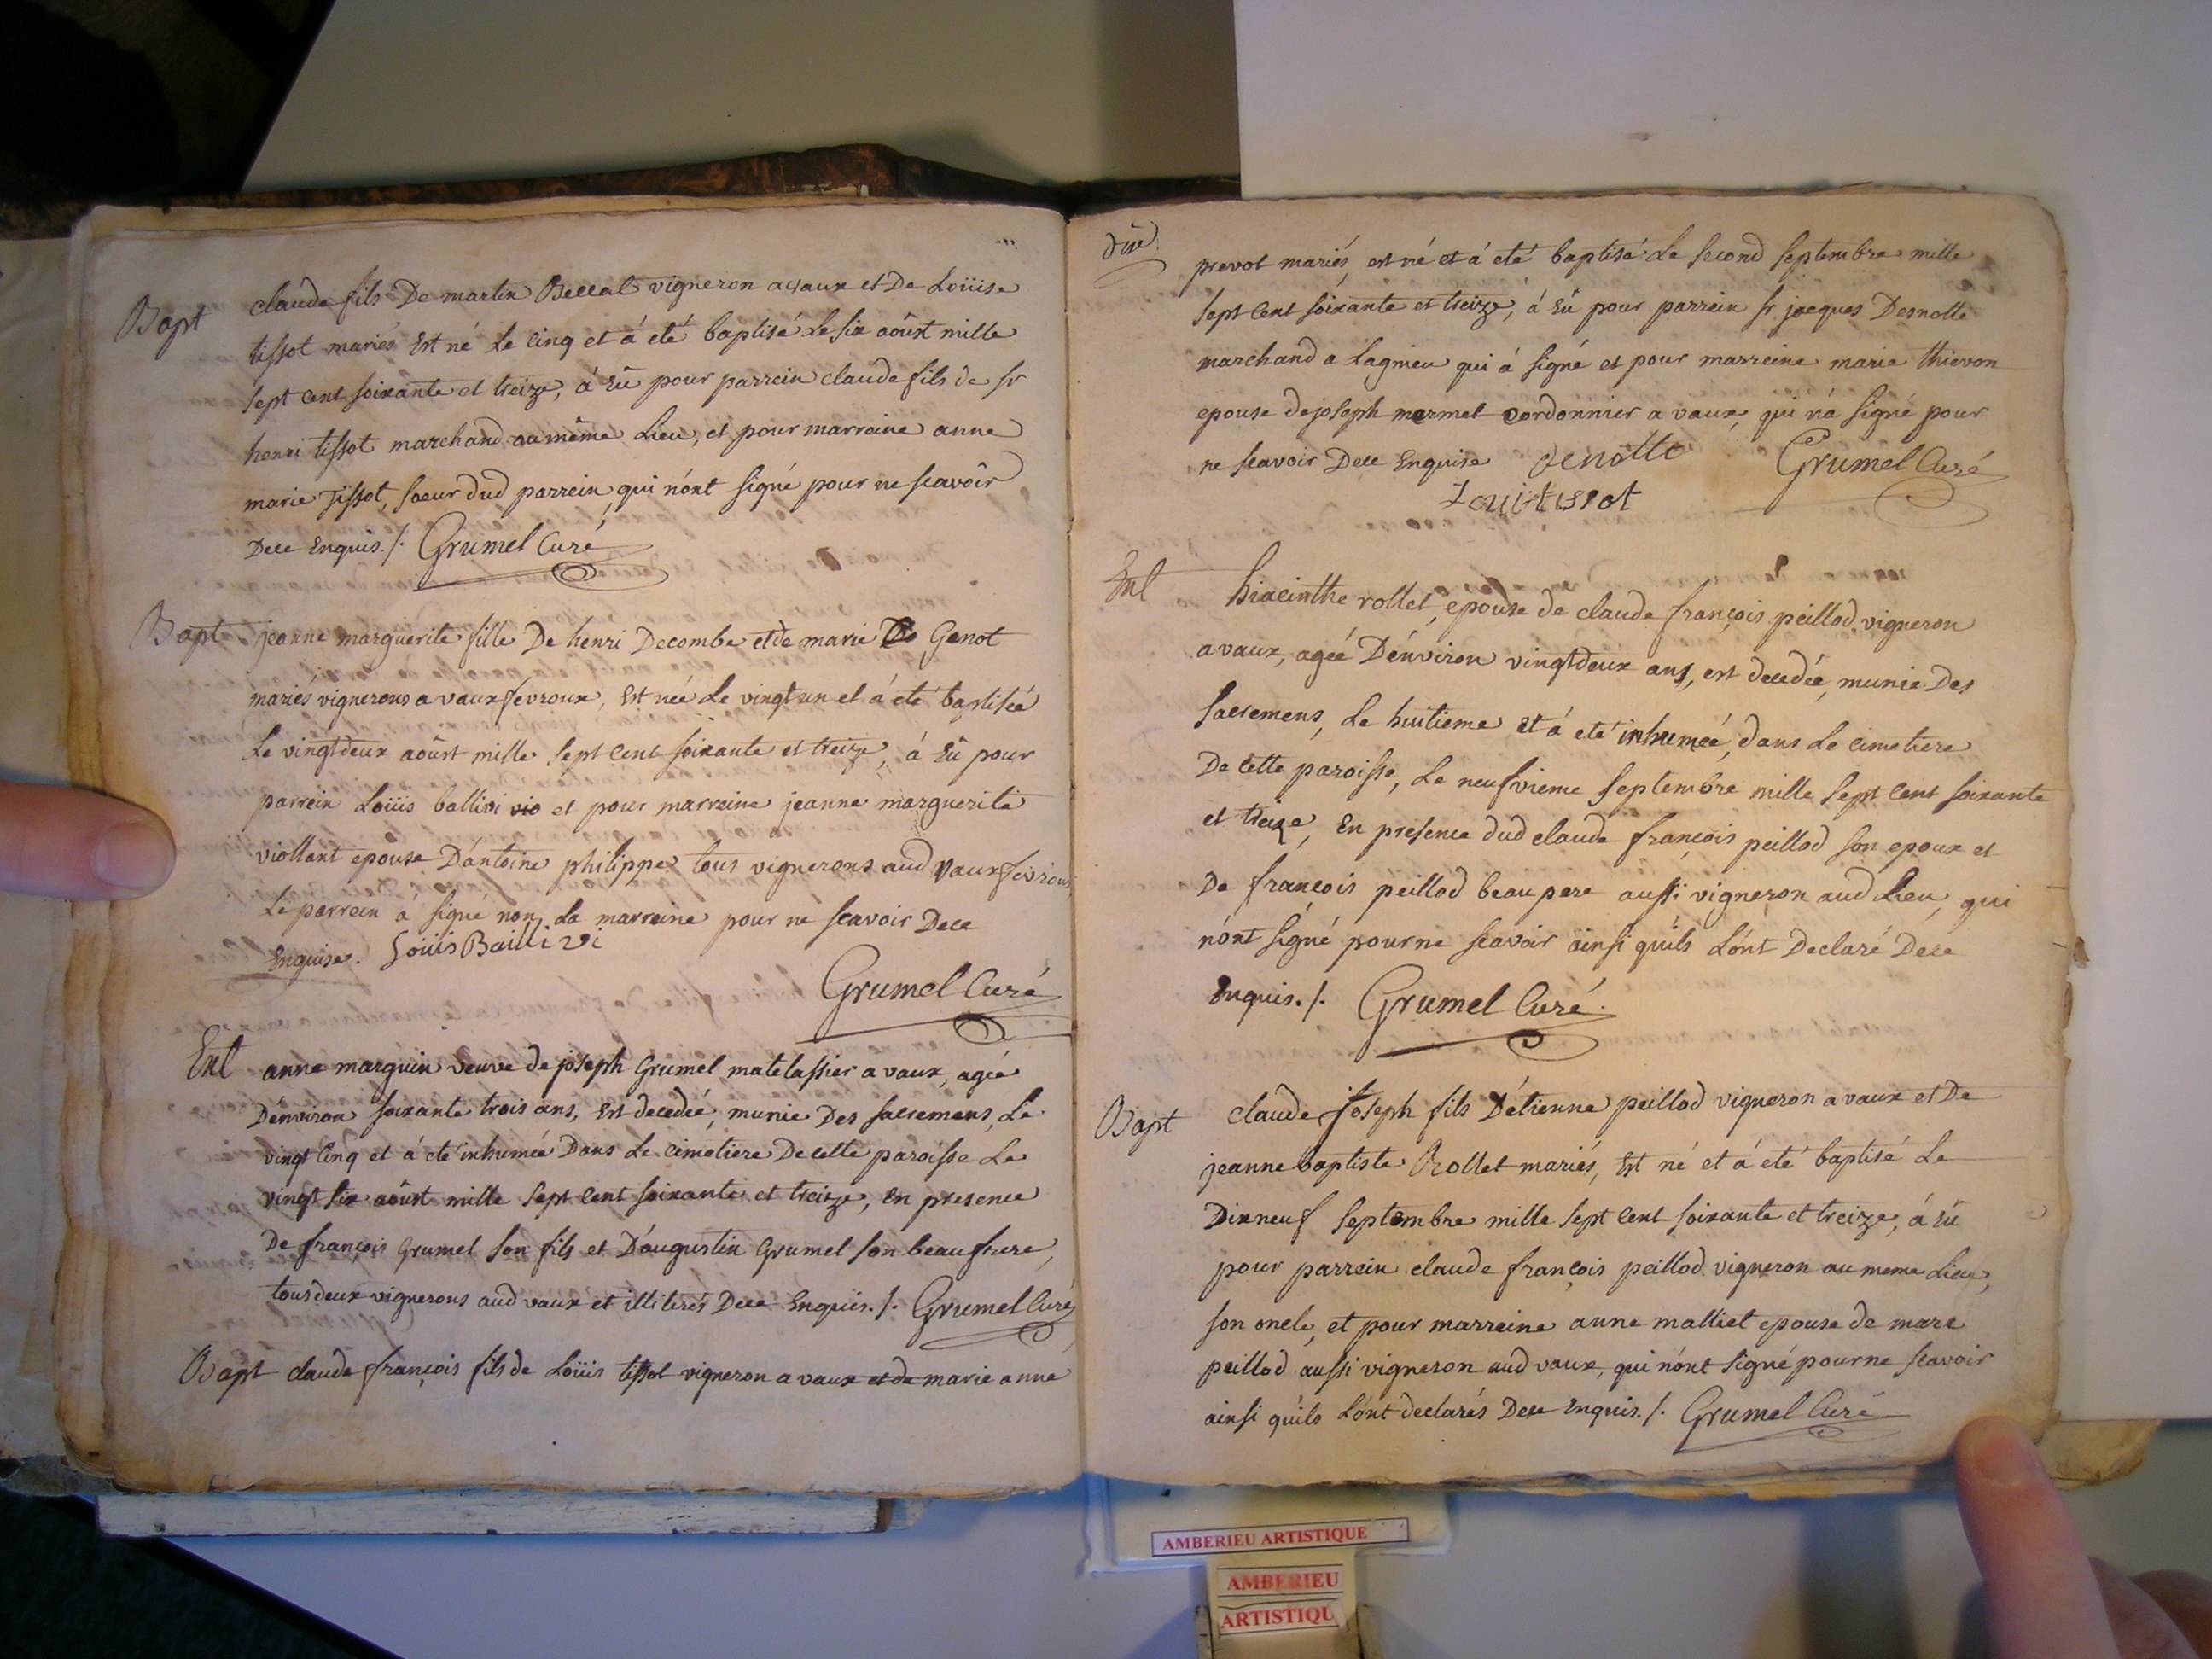 Bapt claude fils De martin Bellat vigneron a vaux et De Loüise
tissot mariés Est né Le cinq et á eté baptisé Le six aôust mille
sept cent soixante et treize, á Eû pour parrein claude fils de sr
henri tissot marchand au même Lieu, et pour marraine anne
marie Tissot, soeur dud parrein, qui n'ónt signé pour ne scavoir
Dece Enquis./. Grumel Curé
Bapt jeanne marguerite fille De henri Decombe et de marie Genot
mariés vignerons a vaux fevroux, Est née Le vingt un et á eté baptisée
Le vingtdeux aôust mille sept cent soixante et treize, á Eû pour
parrein Loüis ballivi vio et pour marreine jeanne marguerite
viollant epouse D'ántoine philippe tous vignerons aud vaux fevroux,
Le parrein á signé non La marreine pour ne scavoir Dece
Enquise. Loüis Baillivi
Grumel Curé
Ent anne marguin veuve de joseph Grumel matelassier a vaux, agée
D'énviron soixante trois ans, Est decedée, munie Des sacremens, Le
vingt Cinq et á eté inhumée Dans Le cimetiere De cette paroisse Le
vingt six aôust mille sept cent soixante et treize, En presence
De françois Grumel son fils et D'augustin Grumel son beaufrere,
tous deux vignerons aud vaux et illiterés Dece Enquis./. Grumel Curé
Bapt claude françois fils de Loüis tissot vigneron a vaux et de marie anne
prevot mariés, est né et á eté baptisé Le second septembre mille
sept cent soixante et treize, á Eû pour parrein sr jacques Desnotte
marchand a Lagnieu qui á signé et pour marreine marie thievon
epouse de joseph mermet cordonnier a vaux, qui n'á signé pour
ne scavoir Dece Enquise denotte Grumel Curé
Loui tissot
Ent hiacinthe rollet, epouse de claude françois peillod vigneron
a vaux, agée D'énviron vingtdeux ans, est decedée, munie Des
sacremens, Le huitieme et á eté inhumée, dans Le cimetiere
De cette paroisse, Le neufvieme septembre mille sept cent soixante
et treize, En presence dud claude françois peillod son epoux et
De françois peillod beaupere aussi vigneron aud Lieu, qui
n'ónt signé pour ne scavoir ainsi qu'ils L'ónt Declaré Dece
Enquis./. Grumel Curé.
Bapt claude joseph fils D'étienne peillod vigneron a vaux et De
jeanne baptiste Rollet mariés, Est né et á eté baptisé Le
Dixneuf septembre mille sept cent soixante et treize, á Eû
pour parrein claude françois peillod vigneron au meme Lieu,
son oncle, et pour marreine anne malliet epouse de marc
peillod aussi vigneron aud vaux, qui n'ónt signé pour ne scavoir
ainsi qu'ils L'ónt declarés Dece Enquis./. Grumel Curé
AMBERIEU ARTISTIQUE
AMBERIEU
ARTISTIQU